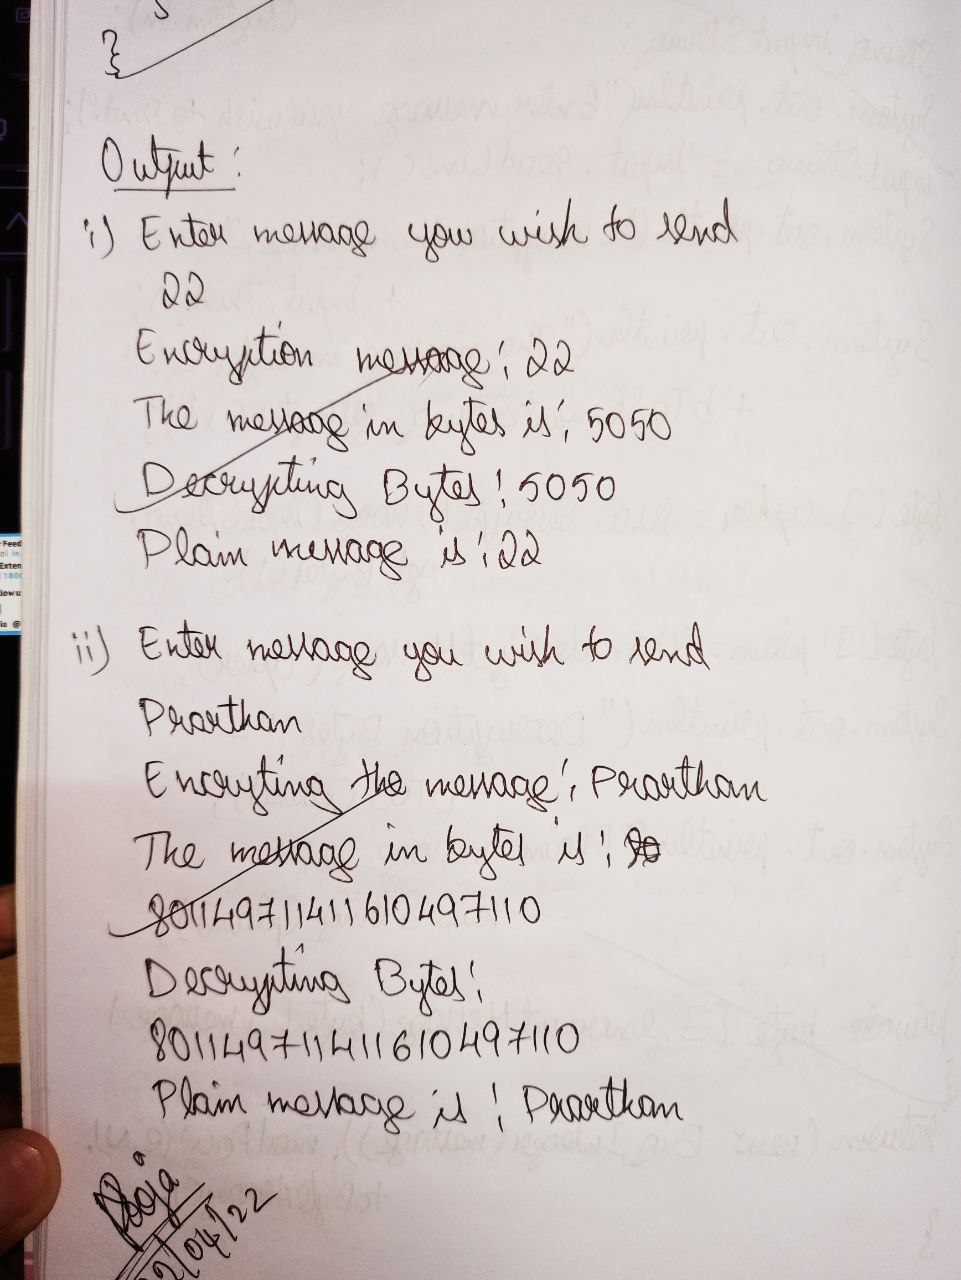 }
Output :
i) Enter message you wish to send
22
Encryption message : 22
The message in bytes is : 5050
Decrypting Bytes : 5050
Plain message is : 22
ii) Enter message you wish to send
Prarthan
Encryting the message : Prarthan
The message in bytes is :
801149711411610497110
Decrypting Bytes :
801149711411610497110
Plain message is : Prarthan
Pooja
22/04/22